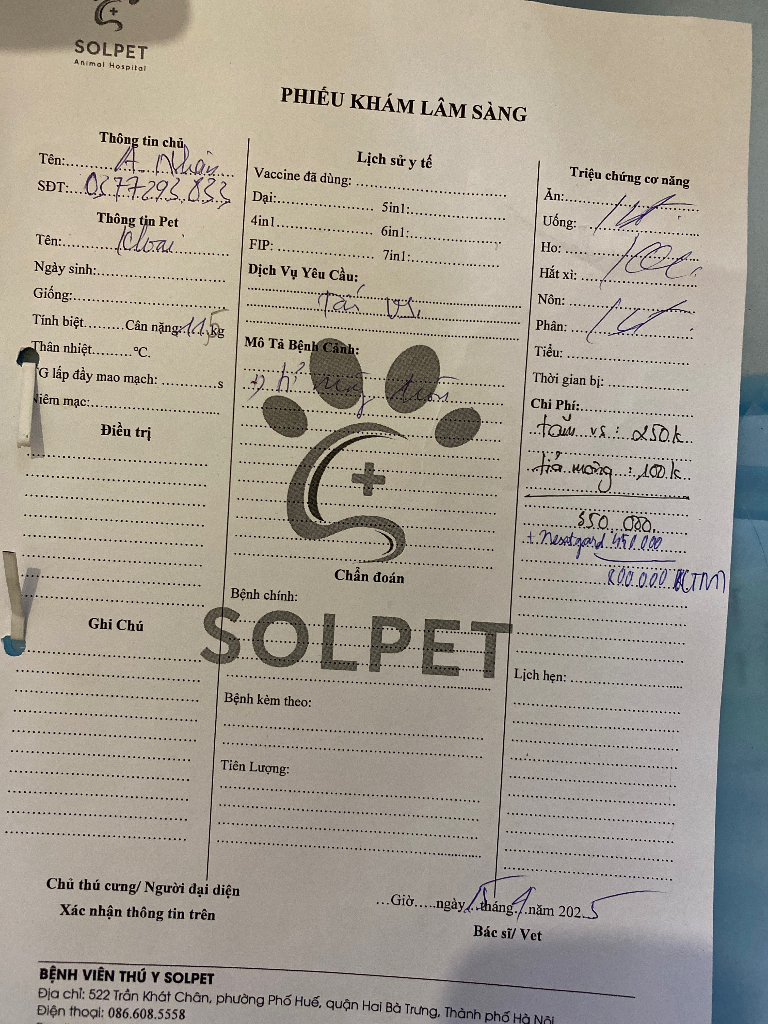 SOLPET
Animal Hospital
PHIẾU KHÁM LÂM SÀNG
Thông tin chủ
Tên: A Nhân
SĐT: 0377293.833
Thông tin Pet
Tên: Khoai
Ngày sinh:
Giống:
Tính biệt Cân nặng: 11,5 kg
Thân nhiệt ºC.
G lấp đầy mao mạch: s
Niêm mạc:
Điều trị
Ghi Chú
Lịch sử y tế
Vaccine đã dùng:
Dại: 5in1:
4in1 6in1:
FIP: 7in1:
Dịch Vụ Yêu Cầu:
Tắm vs.
Mô Tả Bệnh Cảnh:
Chẩn đoán
Bệnh chính:
SOLPET
Bệnh kèm theo:
Tiên Lượng:
Triệu chứng cơ năng
Ăn:
Uống:
Ho:
Hắt xì:
Nôn:
Phân:
Tiểu:
Thời gian bị:
Chi Phí:
tắm vs: 250k
tỉa móng: 100k
350.000
+ Nexatgard 450.000
800.000
Lịch hẹn:
Chủ thú cưng/ Người đại diện
Xác nhận thông tin trên
...Giờ.....ngày 15 tháng 9 năm 2025
Bác sĩ/ Vet
BỆNH VIÊN THÚ Y SOLPET
Địa chỉ: 522 Trần Khát Chân, phường Phố Huế, quận Hai Bà Trưng, Thành phố Hà Nội
Điện thoại: 086.608.5558